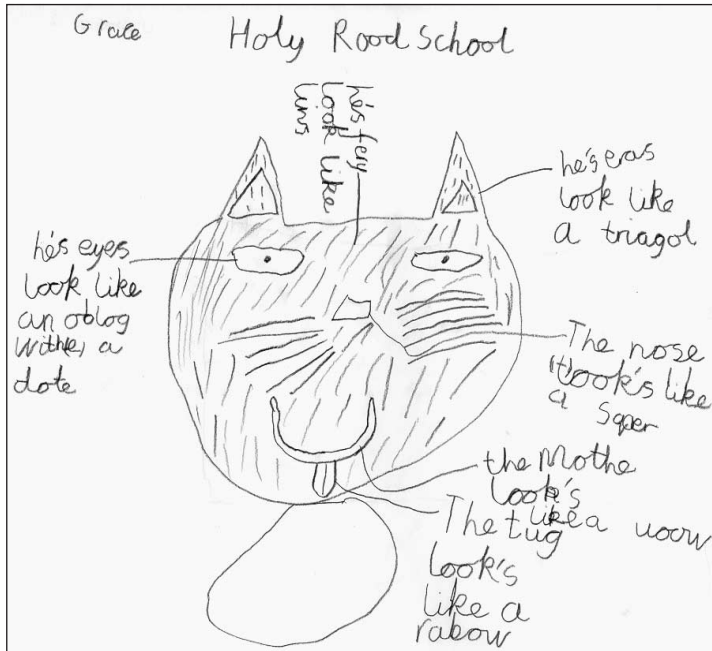 Grace
Holy Rood School
he's fery
look like
lins
he's eras
look like
a triagol
he's eyes
look like
an oblog
withe a
dote
The nose
look's like
a Sqer
the Mothe
look's
like a
The tug
look's
like a
rabow